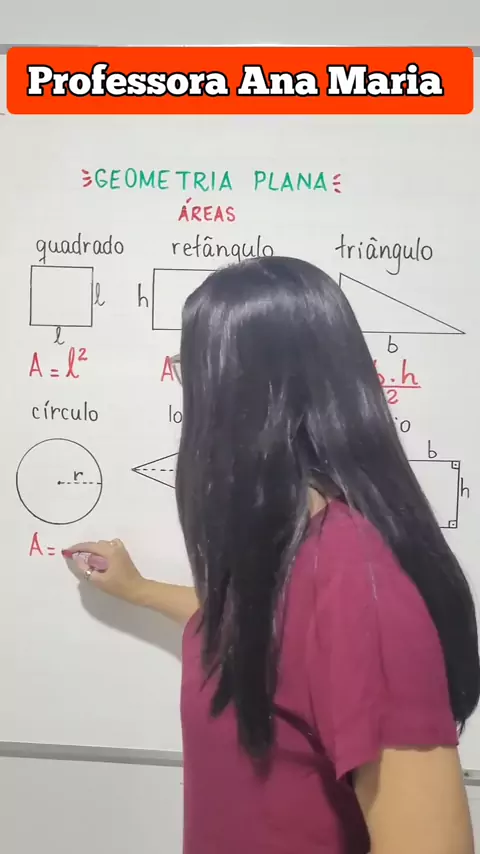 Professora Ana Maria
GEOMETRIA PLANA
ÁREAS
quadrado retângulo triângulo
l h
l b
A = l² A b.h
2
círculo lo io
r b
h
A =